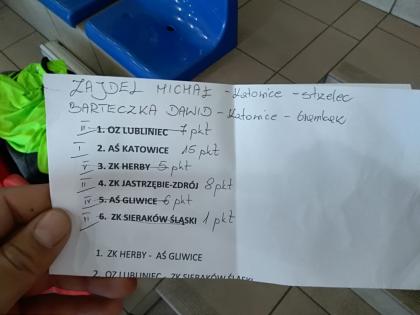 ZAJDEL MICHAŁ - Katowice - strzelec
BARTECZKA DAWID - Katowice - bramkarz
II 1. OZ LUBLINIEC - 7 pkt
I 2. AŚ KATOWICE 15 pkt
V 3. ZK HERBY - 5 pkt
II 4. ZK JASTRZĘBIE-ZDRÓJ 8 pkt
IV 5. AŚ GLIWICE - 6 pkt
VI 6. ZK SIERAKÓW ŚLĄSKI 1 pkt
1. ZK HERBY - AŚ GLIWICE
2. OZ LUBLINIEC - ZK SIERAKÓW ŚLĄSKI